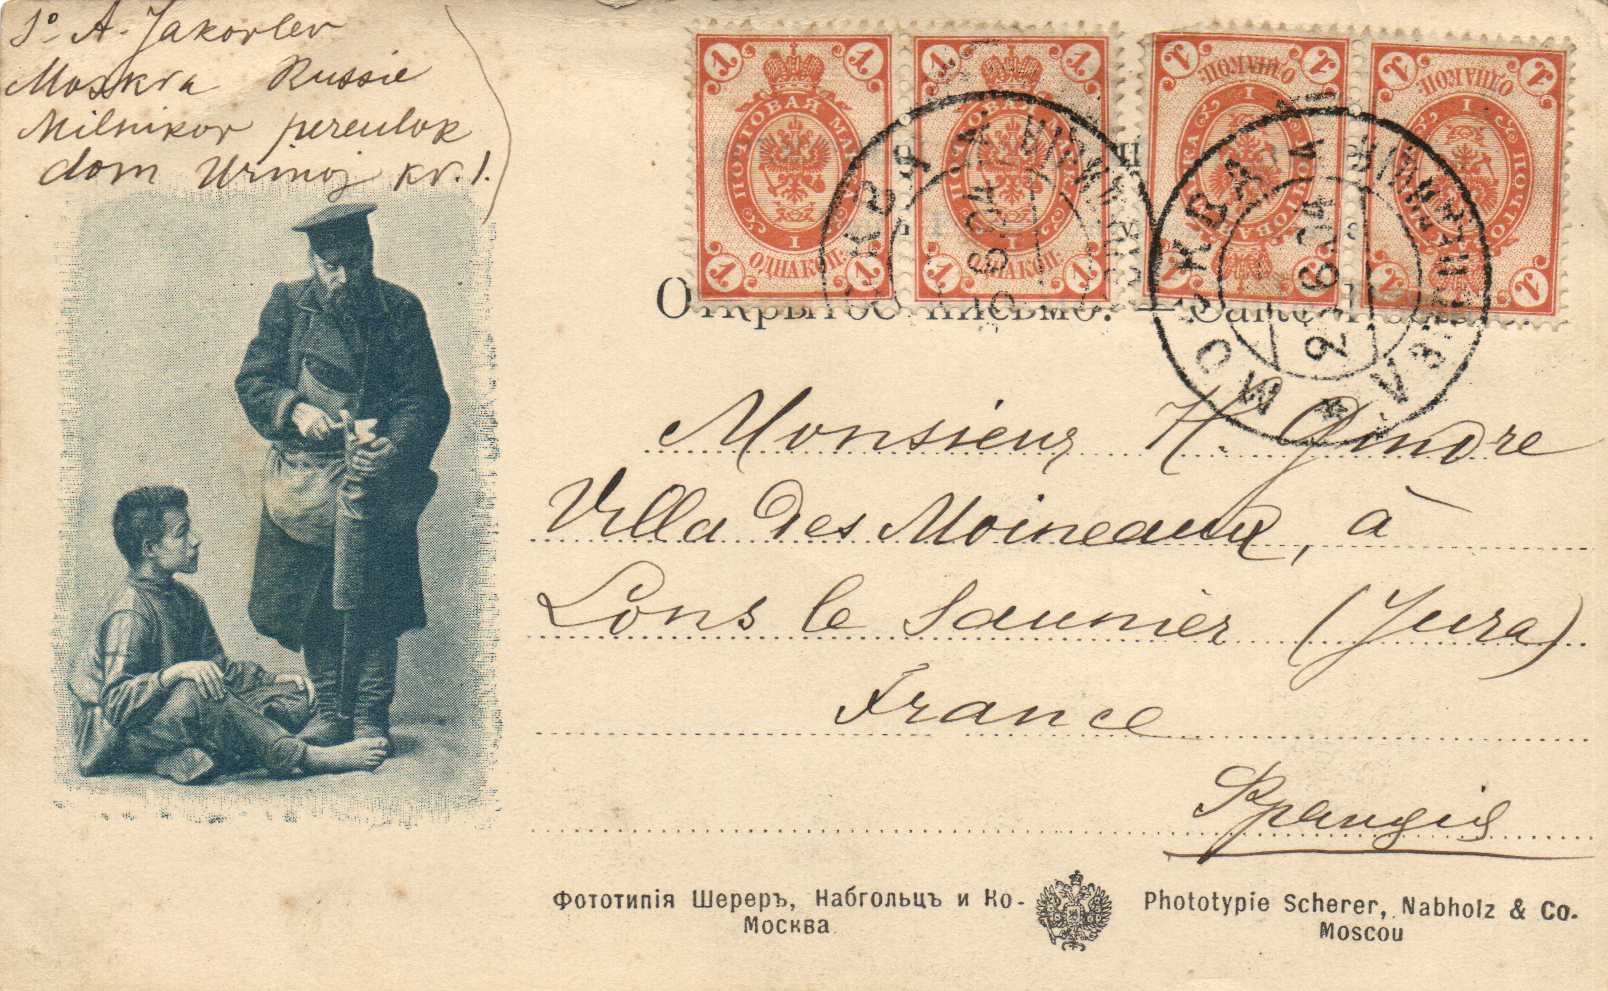 A. Jakovlev
Moskva Russie
Milnikov pereulok
dom Urinoj kv. 1.
1 1 1 1
ПОЧТОВАЯ МАРКА
1
ОДНА КОП.
1 1 1 1
ПОЧТОВАЯ МАРКА
1
ОДНА КОП.
1 1 1 1
ПОЧТОВАЯ МАРКА
1
ОДНА КОП.
1 1 1 1
ПОЧТОВАЯ МАРКА
1
ОДНА КОП.
МОСКВА
Открытое письмо. — Carte postale
Monsieur H. Gindre
Villa des Moineaux, à
Lons le Saunier (Jura)
France
Франція
Фототипія Шереръ, Набгольцъ и Ко-
Москва
Phototypie Scherer, Nabholz & Co.
Moscou